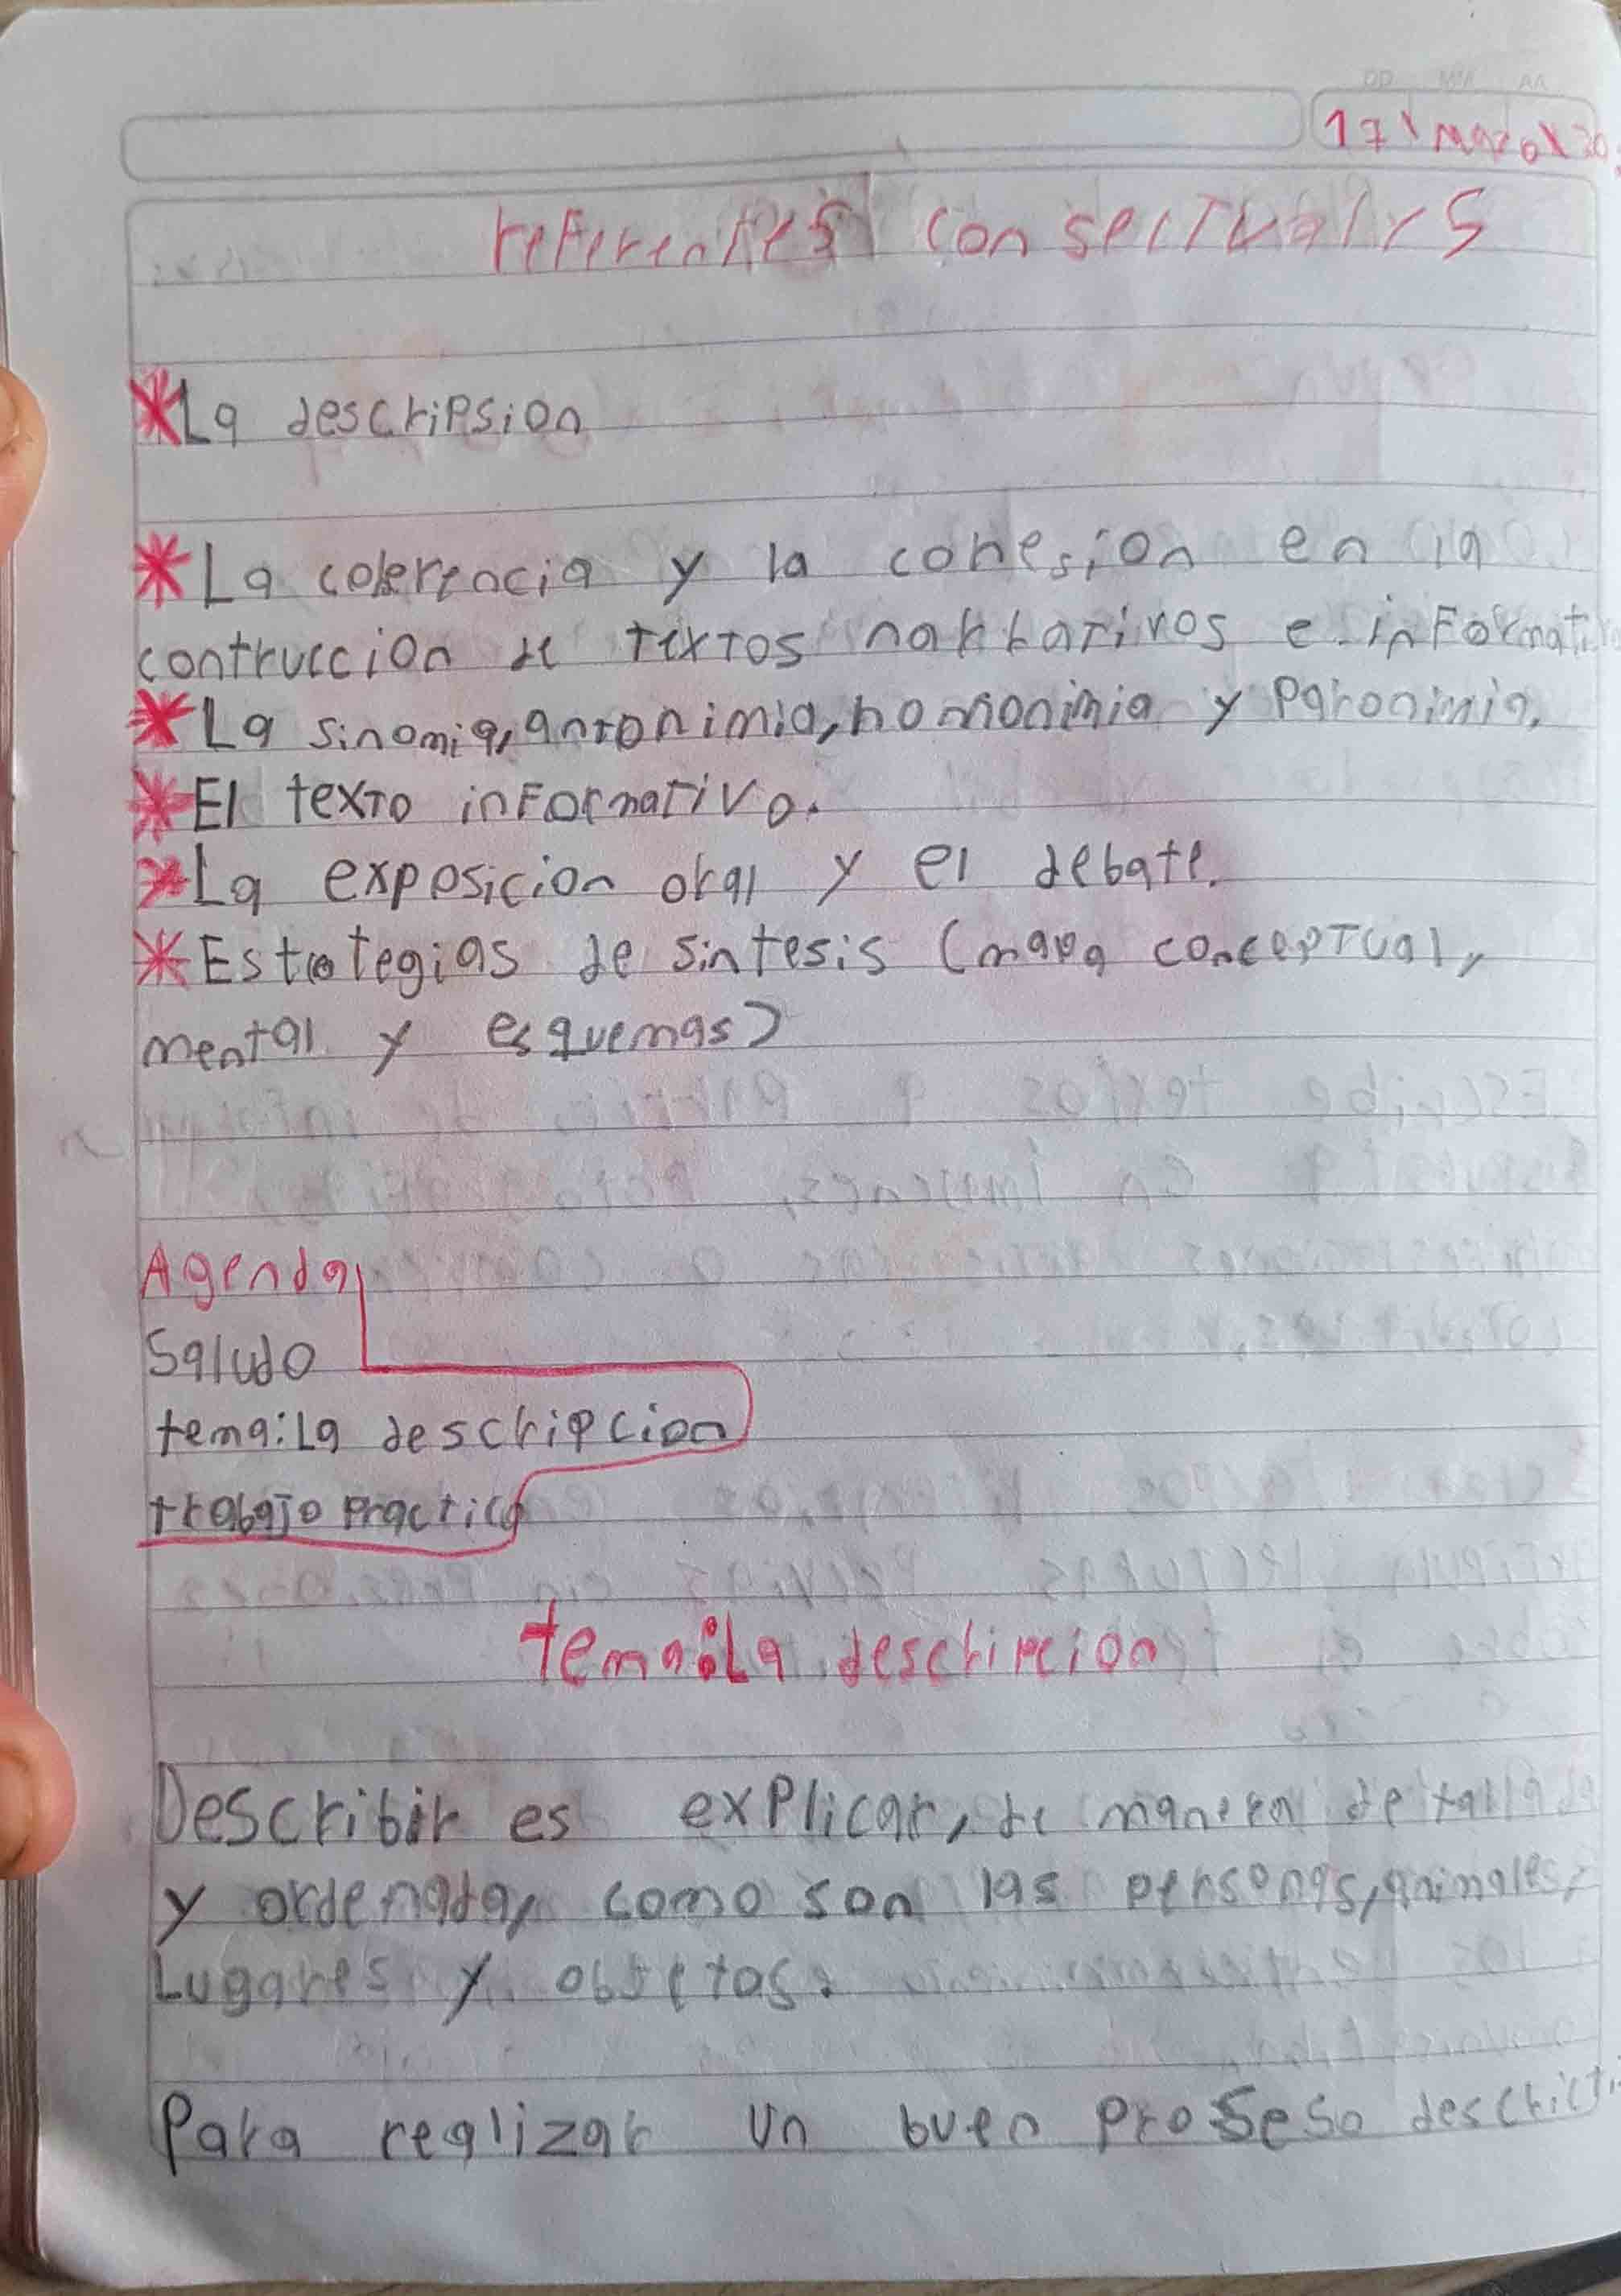 DD MM AA
17 \ \ 20
referentes consectuales
*La descripsion
*La coherencia y la cohesion en la
contruccion de textos narrativos e informati
*La sinomia, antonimia, homonimia y paronimia.
*El texto informativo.
*La exposicion oral y el debate.
*Estrategias de sintesis (mapa conceptual,
mental y esquemas)
Agenda
Saludo
tema: La descripcion
trabajo practico
tema: La descripcion
Describir es explicar, de manera detallada
y ordenada, como son las personas, animales,
Lugares y objetos.
Para realizar un buen proseso descricti